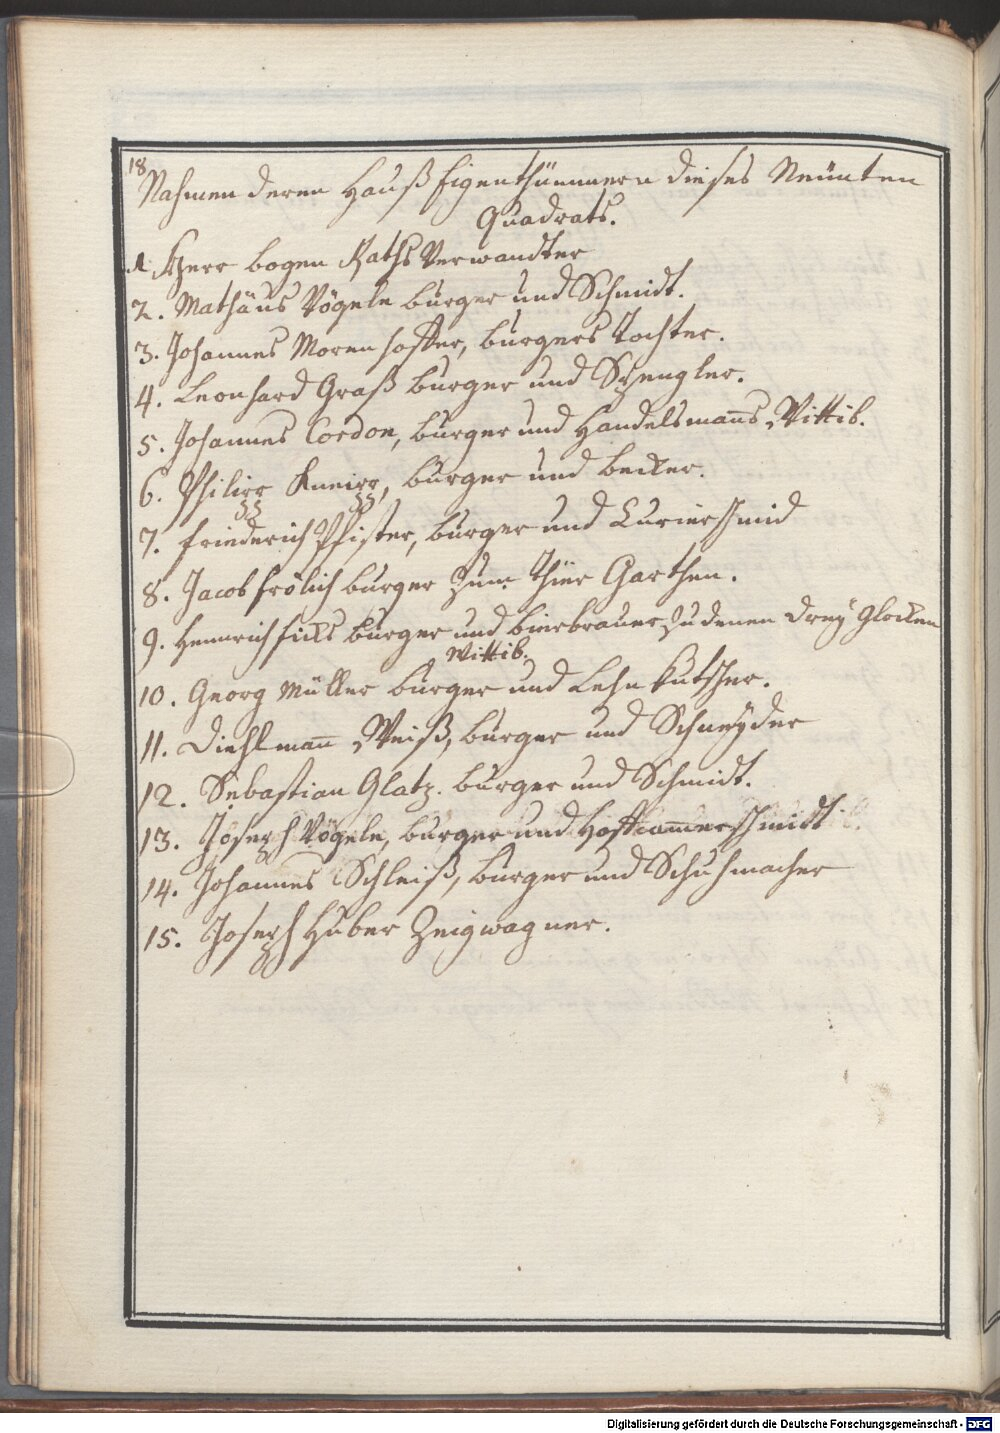 18
Nahmen deren Hauß Eigenthümmern dieses Neunten
Quadrats.
1. Herr bogen Raths Verwandter
2. Mathäus Vögele burger und Schmidt.
3. Johannes Morenhoffer, burgers Tochter.
4. Leonhard Graß burger und Spengler.
5. Johannes Cordon, burger und Handelsmañs Wittib.
6. Philipp Kneipp, burger und becker.
7. Friederich Pfister, burger und Curierschmid
8. Jacob frölich burger zum Thier Garthen.
9. Hennrich ficks burger und bierbrauer zu denen dreÿ Glocken
Wittib.
10. Georg Müller burger und Lehnkutscher.
11. Diehlmañ Weiß, burger und Schneÿder
12. Sebastian Glatz. burger und Schmidt.
13. Joseph Vögele, burger und Hoffcam̃erschmidt
14. Johannes Schleiß, burger und Schuhmacher
15. Joseph Huber Zeigwagner.
Digitalisierung gefördert durch die Deutsche Forschungsgemeinschaft - DFG